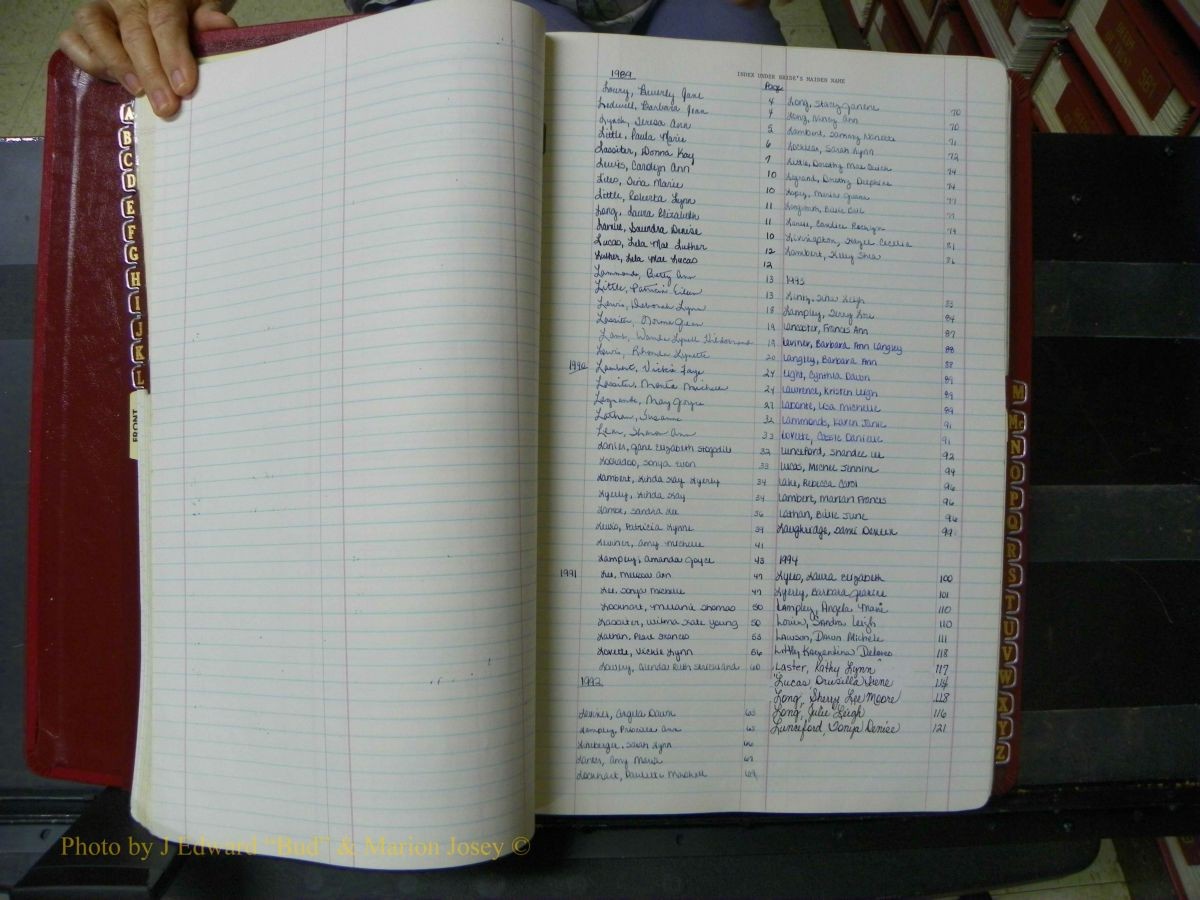 INDEX UNDER BRIDE'S MAIDEN NAME
1989 Page
Lowry, Beverly Jane 4
Ledwell, Barbara Jean 4
Lynch, Teresa Ann 5
Little, Paula Marie 6
Lassiter, Donna Kay 7
Lewis, Carolyn Ann 10
Liles, Gina Marie 10
Little, Roberta Lynn 11
Long, Laura Elizabeth 11
Lanier, Saundra Denise 10
Lucas, Lela Mae Luther 12
Luther, Lela Mae Lucas 12
Lammonds, Betty Ann 13
Little, Patricia Eileen 13
Lewis, Deborah Lynn 18
Lassiter, Norma Green 19
Lamb, Wanda Lynell 19
Lewis, Rhonda Lynette 20
1990 Lambert, Vickie Faye 24
Lassiter, Monta Michele 24
Legrande, May Joyce 27
Lathan, Susanne 32
Lean, Sharon Ann 33
Lanier, Jane Elizabeth 32
Lookadoo, Sonya 33
Lambert, Linda Kay Lyerly 34
Lyerly, Linda Kay 34
Lambe, Sandra Lee 36
Lewis, Patricia Lynne 39
Leviner, Amy Michelle 41
Lampley, Amanda Joyce 43
1991 Lee, Melissa Ann 47
Lee, Sonya Michelle 47
Lockhart, Melanie Thomas 50
Lassiter, Wilma Kate Young 50
Lathan, Pearl Frances 53
Lovette, Vickie Lynn 56
Lowery, Glenda Ruth Strickland 60
1992
Leviner, Angela Dawn 63
Lampley, Priscilla Ann 63
Lineberger, Sarah Lynn 66
Lanier, Amy Marie 67
Lockhart, Paulette 69
Long, Stacy Janene 70
Long, Nancy Ann 70
Lambert, Sammy 71
Locklear, Sarah Lynn 72
Little, Dorothy Mae 74
Legrand, Dorothy Delphine 74
Lopez, Maria 77
Livingston, Hazel Cecelia 81
Lambert, Kelly Shea
1993
Lentz, Tina Leigh 83
Lampley, Terry 84
Lancaster, Frances Ann 87
Leviner, Barbara Ann Langley 88
Langley, Barbara Ann 88
Light, Cynthia Dawn 89
Lawrence, Kristen Leigh 89
Laponte, Lisa Michelle 89
Lammonds, Karen Janie 91
Lovette, Cassie Danielle 91
Lunceford, Shandee Lee 92
Lucas, Michel Jennine 94
Lake, Rebecca Carol 96
Lambert, Marian Frances 96
Lathan, Billie June 96
Laughridge, Dami Doreen 99
1994
Lyles, Laura Elizabeth 100
Lyerly, Barbara Jeanine 101
Lampley, Angela Marie 110
Lowin, Sandra Leigh 110
Lawson, Dawn Michele 111
Lilly, Kaczendina Delores 118
Laster, Kathy Lynn 117
Lucas Drusilla Irene 114
Long, Sherry Lee Moore 118
Long, Julie Leigh 116
Lunceford, Tonya Denise 121
A
B
C
D
E
F
G
H
I
J
K
L
FRONT
M
Mc
N
O
P
Q
R
S
T
U
V
W
X
Y
Z
Photo by J Edward "Bud" & Marion Josey ©